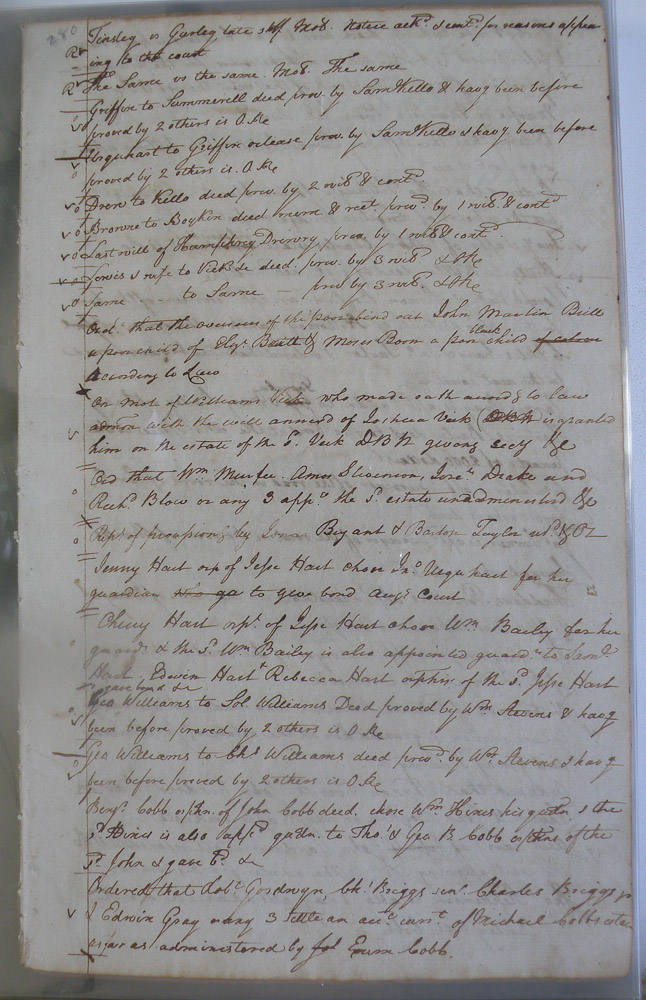 280
Tinsley vs Gurley late shff Mo.. Notice ackd & cont. for reasons appear
ing to the court
The Same vs the same. Mo.. The same
Griffin to Summerell deed prov. by Saml Kello & havg been before
proved by 2 others is O Re
Urquhart to Griffin release prov. by Saml Kello & havg been before
proved by 2 others is. O Re
Drew to Kello deed prov. by 2 wits & contd
Browne to Boykin deed mem & rect. provd. by 1 wit & contd
Last will of Humphrey Drewry prov. by 1 wit & contd.
& wife to Vick &c deed. prov. by 3 wits. & O Re
Same - to Same - prov by 3 wits. & O Re
Ord. that the overseers of the poor bind out John Martin Britt
a poor child of Elizt. & Moses Born a poor black child of colour
According to Law
On Mot. of Williams Vick who made oath accordg to law
admon with the will annexd of Joshua Vick is granted
him on the estate of the sd. Vick DBN giving secy &c
Ord that Wm Murfee. Amos Stevenson, Drake and
Richd. Blow or any 3 appe. the sd. estate unadministerd &c
by Bryant & Barton Taylor 1802
Jenny Hart orp of Jesse Hart chose Jno Urquhart for her
guardian to give bond augt. Court
Cherry Hart orpn. of Jesse Hart chose Wm Bailey for her
guardn & the sd. Wm Bailey is also appointed guardn. to Saml.
Hart, Edwin Hart & Rebecca Hart orphns of the sd Jesse Hart
gave bond &c
Geo Williams to Sol Williams Deed proved by Wm Stevens & havg
been before proved by 2 others is O Re
Geo Williams to Chs Williams deed provd. by Wm Stevens & havg
been before proved by 2 others is O Re
Benja. Cobb orphn. of John Cobb decd. chose Wm Hines his guardn & the
sd. Hines is also appd gardn. to Thos. & Geo B. Cobb orphns of the
sd. John & gave bd. &c
Ordered that Robt. Goodwyn, Chs. Briggs senr. Charles Briggs jr
& Edwin Gray or any 3 settle an acct. currt. of Michael Cobbs estate
as far as administered by Exum Cobb.